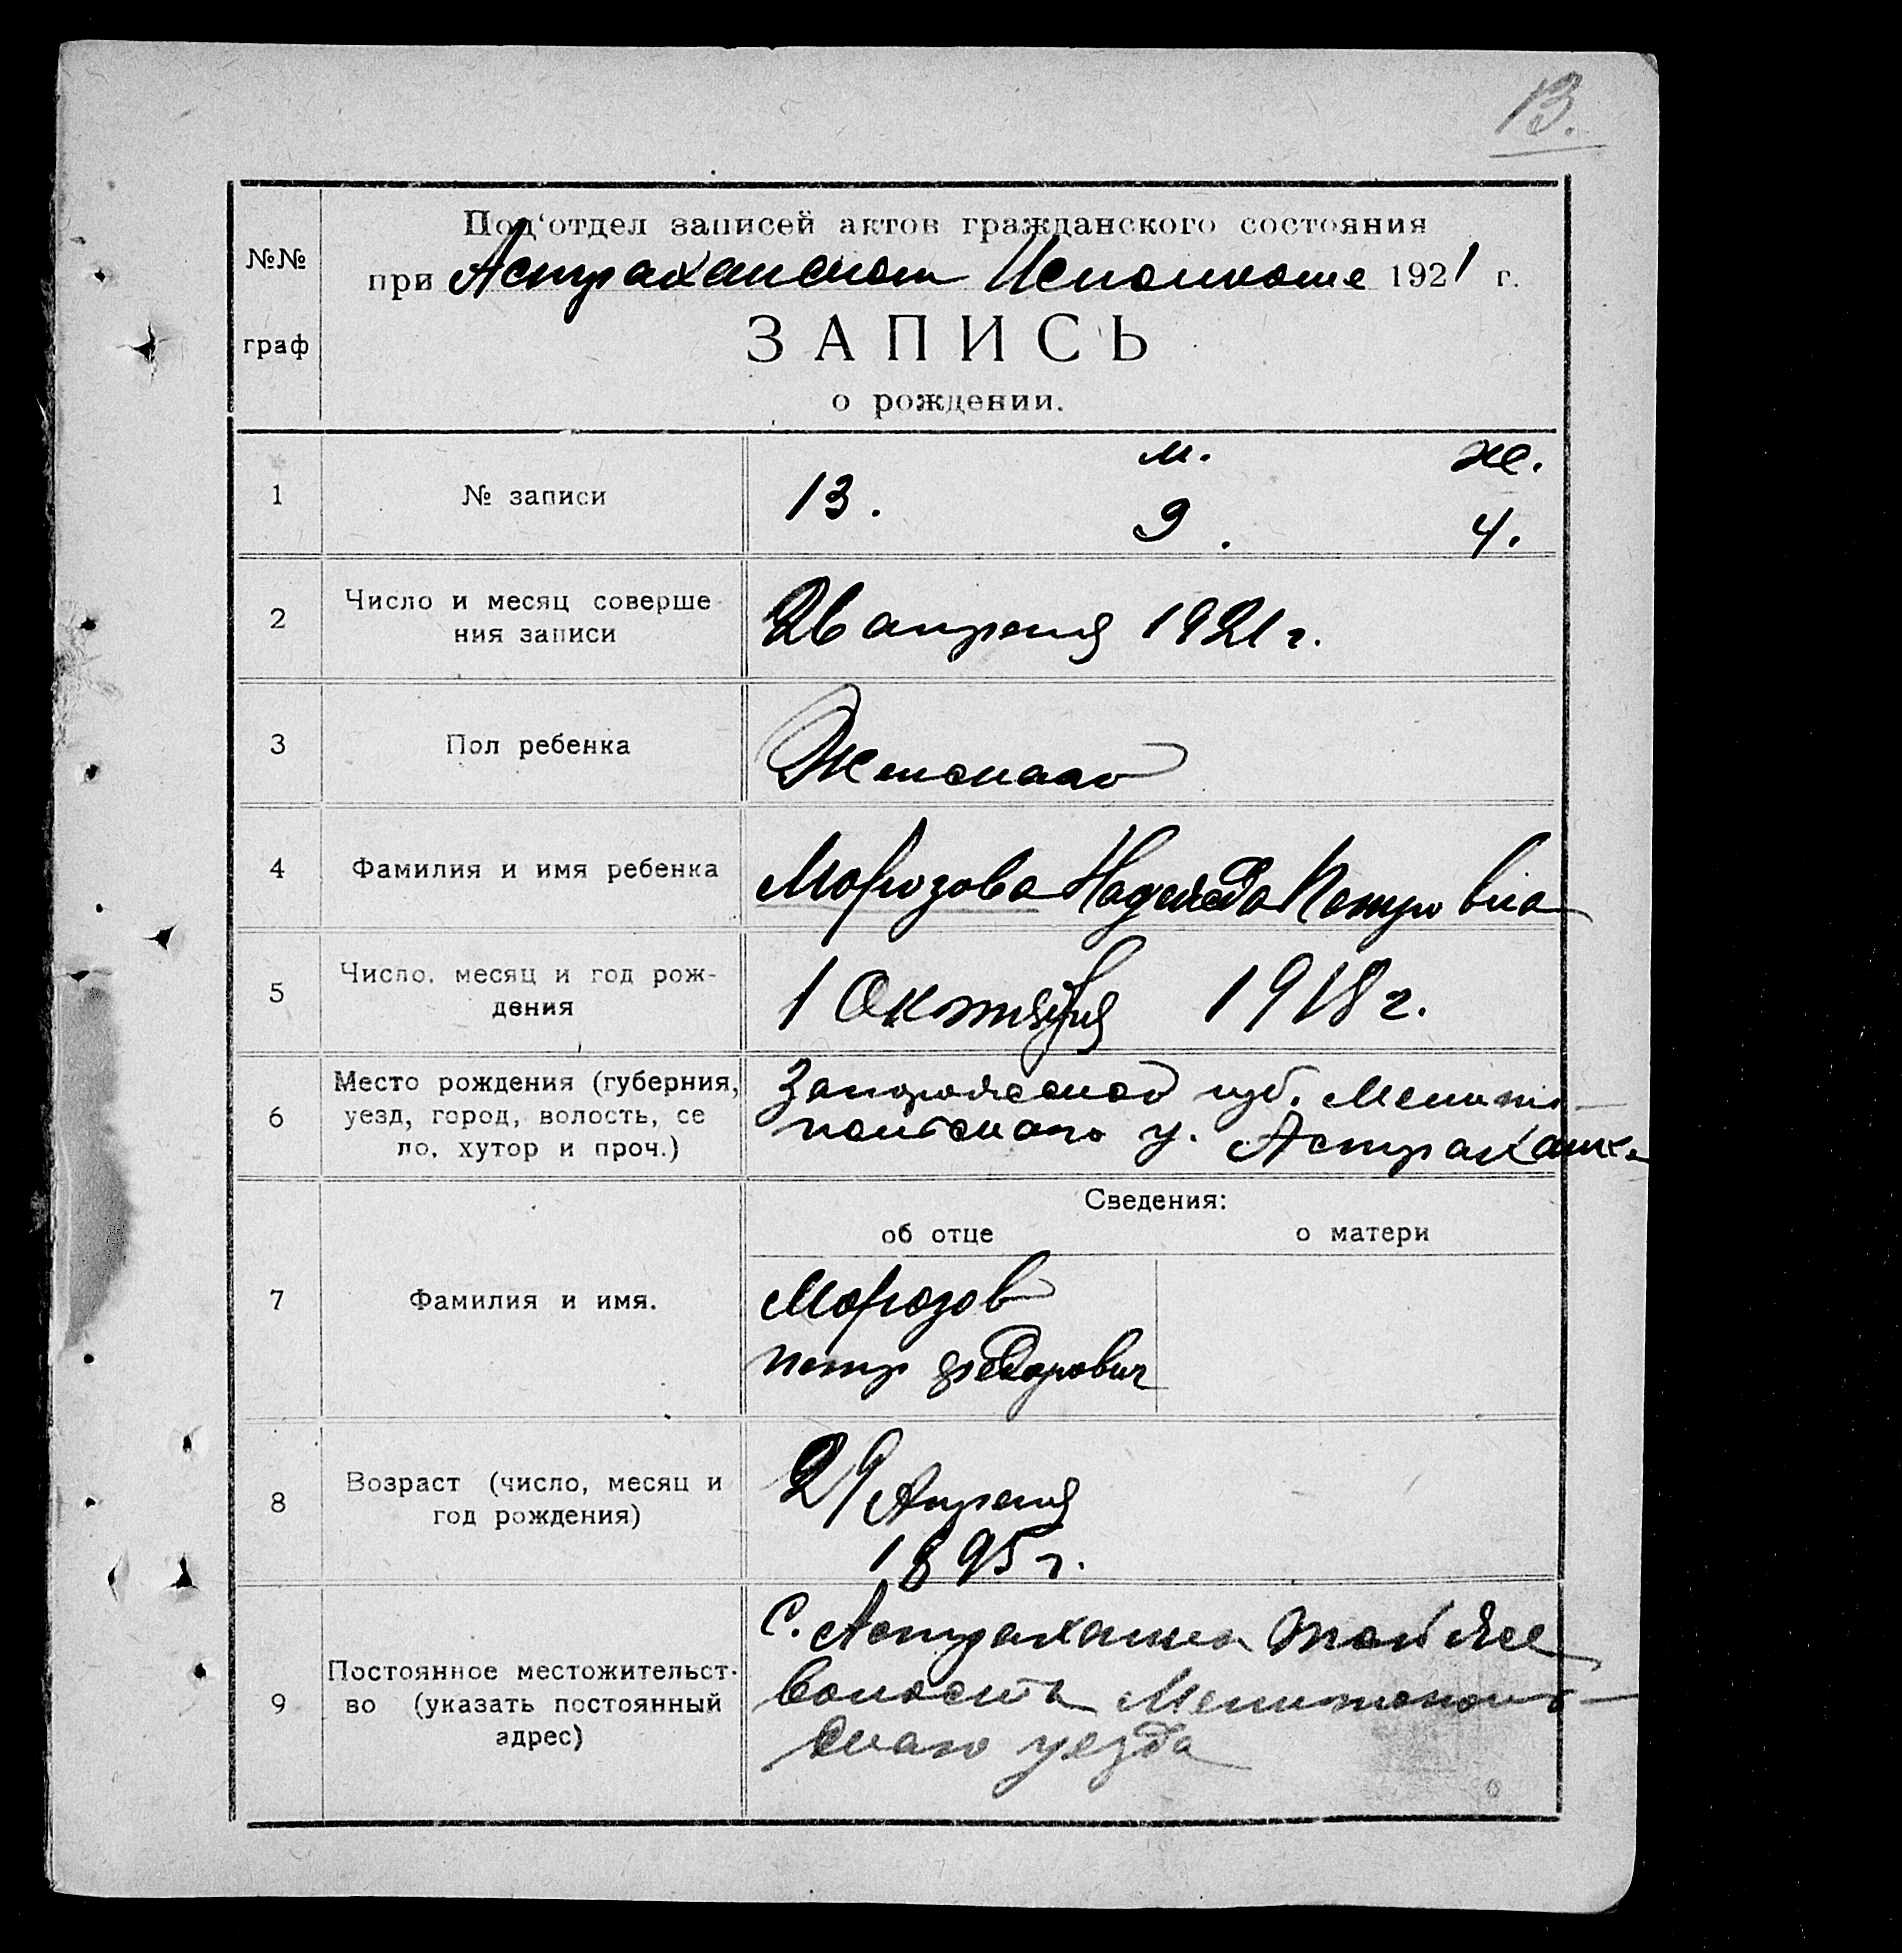 13.
Под'отдел записей актов гражданского состояния
№№
при Астраханском Исполкоме 1921 г.
граф
ЗАПИСЬ
о рождении.
м. ж.
1 № записи 13. 9. 4.
2 Число и месяц соверше
ния записи
26 апреля 1921 г.
3 Пол ребенка Женскаго
4 Фамилия и имя ребенка Морозова Надежда Петровна
5 Число, месяц и год рож-
дения
1 Октября 1918 г.
6 Место рождения (губерния,
уезд, город, волость, се
ло, хутор и проч.)
Запорожской губ. Мелито-
польскаго у. Астраханка
Сведения:
об отце о матери
7 Фамилия и имя.
Морозов
Петр Федорович
8 Возраст (число, месяц и
год рождения)
29 Апреля
1895 г.
9 Постоянное местожительст-
во (указать постоянный
адрес)
С. Астраханка той же
волости Мелитополь-
скаго уезда